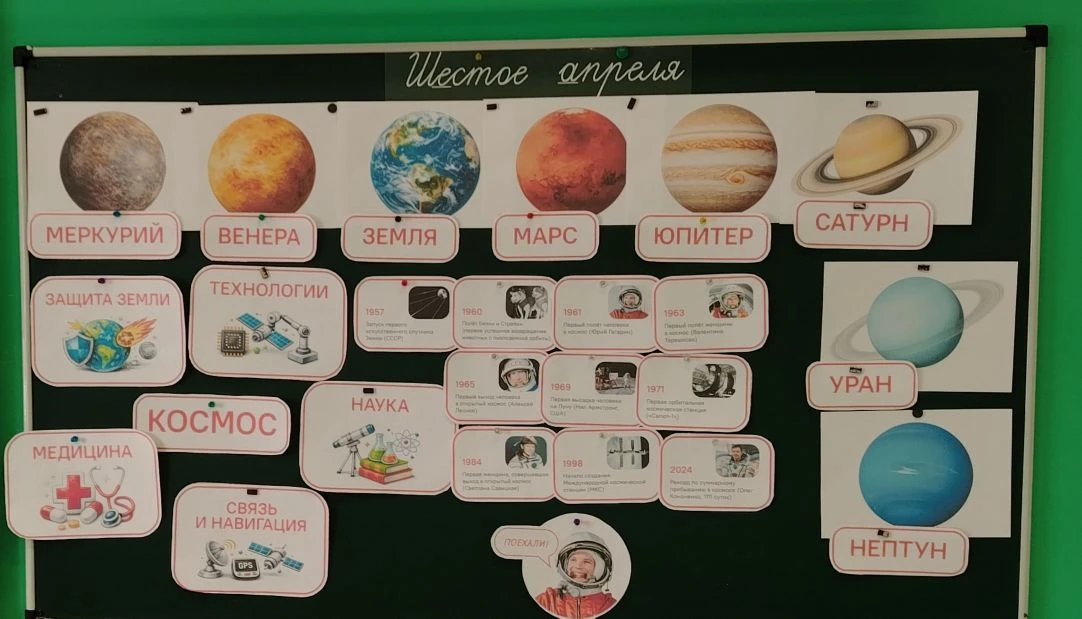 Шестое апреля
МЕРКУРИЙ
ВЕНЕРА
ЗЕМЛЯ
МАРС
ЮПИТЕР
САТУРН
ЗАЩИТА ЗЕМЛИ
ТЕХНОЛОГИИ
1957
Запуск первого
искусственного спутника
Земли (СССР)
1960
Полёт Белки и Стрелки
(первое успешное возвращение
животных с околоземной орбиты)
1961
Первый полёт человека
в космос (Юрий Гагарин)
1963
Первый полёт женщины
в космос (Валентина
Терешкова)
УРАН
1965
Первый выход человека
в открытый космос (Алексей
Леонов)
1969
Первая высадка человека
на Луну (Нил Армстронг,
США)
1971
Первая орбитальная
космическая станция
(«Салют-1»)
КОСМОС
НАУКА
МЕДИЦИНА
1984
Первая женщина, совершившая
выход в открытый космос
(Светлана Савицкая)
1998
Начало создания
Международной космической
станции (МКС)
2024
Рекорд по суммарному
пребыванию в космосе (Олег
Кононенко, 1111 суток)
СВЯЗЬ
И НАВИГАЦИЯ
GPS
ПОЕХАЛИ!
НЕПТУН